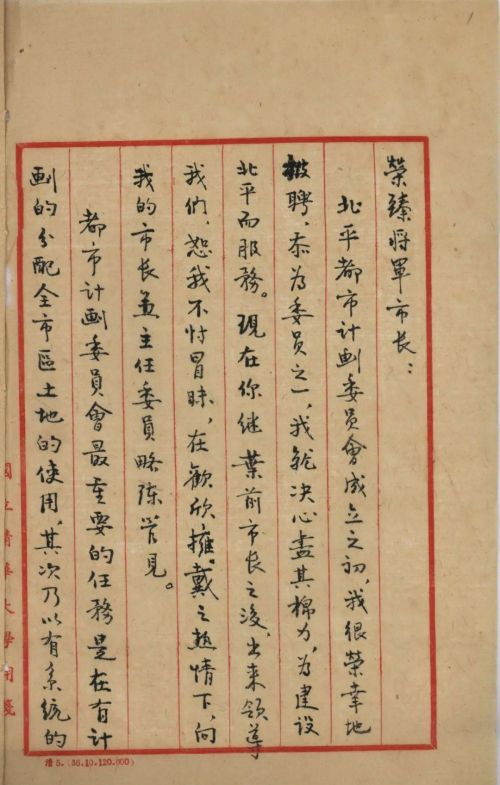 榮臻将軍市长：
北平都市计劃委员會成立之初，我很榮幸地
被聘，忝为委员之一，我就决心盡其棉力，为建设
北平而服務。现在你继葉前市长之後，出来领導
我们，恕我不忖冒昧，在歡欣擁戴之热情下，向
我的市长兼主任委員略陈管見。
都市计劃委員會最重要的任務是在有计
劃的分配全市區土地的使用，其次乃以有系統的
國立清華大學用箋
清5.(36.10.120.000)
1